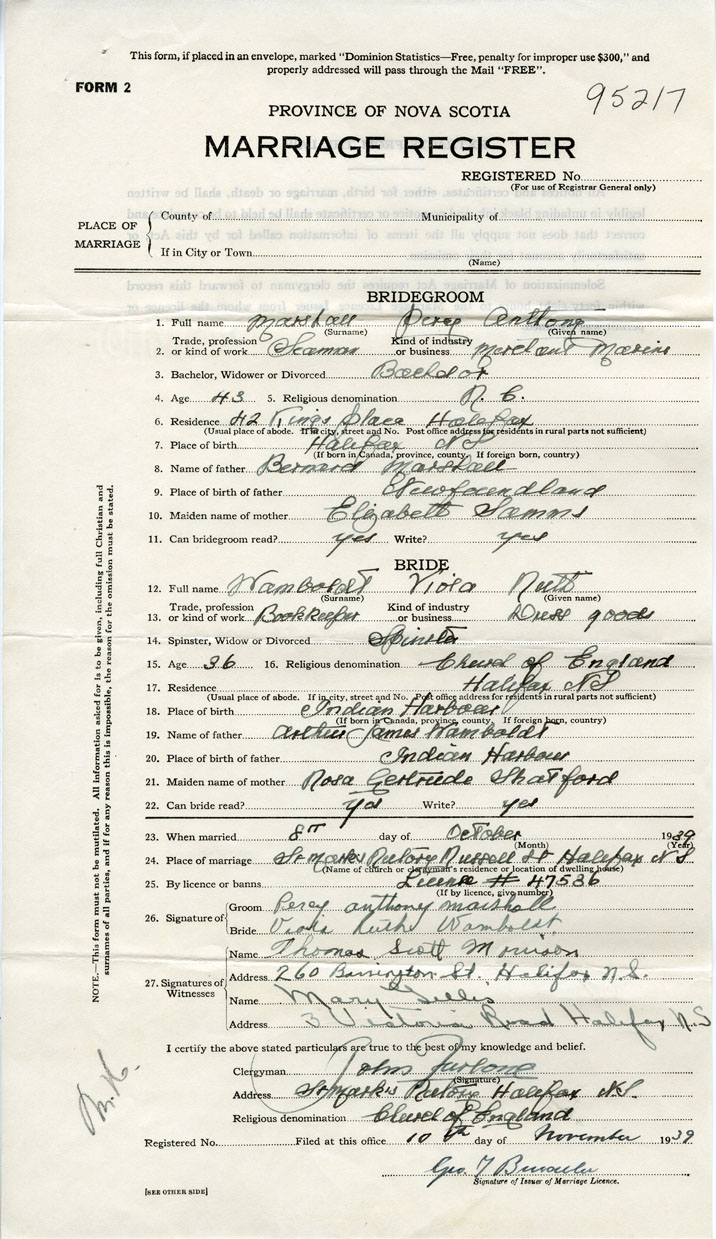 This form, if placed in an envelope, marked "Dominion Statistics—Free, penalty for improper use $300," and
properly addressed will pass through the Mail "FREE".
FORM 2
95217
PROVINCE OF NOVA SCOTIA
MARRIAGE REGISTER
REGISTERED No.
(For use of Registrar General only)
PLACE OF MARRIAGE
County of Municipality of
If in City or Town
(Name)
BRIDEGROOM
1. Full name Marshall Percy Anthony
(Surname) (Given name)
2. Trade, profession or kind of work Seaman Kind of industry or business Merchant Marine
3. Bachelor, Widower or Divorced Bachelor
4. Age 43 5. Religious denomination R. C.
6. Residence 42 Kings Place Halifax
(Usual place of abode. If in city, street and No. Post office address for residents in rural parts not sufficient)
7. Place of birth Halifax NS
(If born in Canada, province, county. If foreign born, country)
8. Name of father Bernard Marshall
9. Place of birth of father Newfoundland
10. Maiden name of mother Elizabeth Samms
11. Can bridegroom read? yes Write? yes
BRIDE
12. Full name Wamboldt Viola Ruth
(Surname) (Given name)
13. Trade, profession or kind of work Bookkeeper Kind of industry or business Dress goods
14. Spinster, Widow or Divorced Spinster
15. Age 36 16. Religious denomination Church of England
17. Residence Halifax NS
(Usual place of abode. If in city, street and No. Post office address for residents in rural parts not sufficient)
18. Place of birth Indian Harbour
(If born in Canada, province, county. If foreign born, country)
19. Name of father Arthur James Wamboldt
20. Place of birth of father Indian Harbour
21. Maiden name of mother Rosa Gertrude Shatford
22. Can bride read? yes Write? yes
23. When married 8th day of October 1939
(Month) (Year)
24. Place of marriage St Marks Rectory Russell St Halifax NS
(Name of church or clergyman's residence or location of dwelling house)
25. By licence or banns License # 47536
(If by licence, give number)
26. Signature of
Groom Percy anthony marshall
Bride Viola Ruth Wamboldt
27. Signatures of Witnesses
Name Thomas Scott Morrison
Address 260 Barrington St. Halifax N.S.
Name Mary Gillis
Address 3 Victoria Road Halifax N.S
I certify the above stated particulars are true to the best of my knowledge and belief.
Clergyman John Furlong
(Signature)
Address St Marks Rectory Halifax NS.
Religious denomination Church of England
Registered No. Filed at this office 10th day of November 1939
Geo. T
Signature of Issuer of Marriage Licence.
[SEE OTHER SIDE]
NOTE.—This form must not be mutilated. All information asked for is to be given, including full Christian and
surnames of all parties, and if for any reason this is impossible, the reason for the omission must be stated.